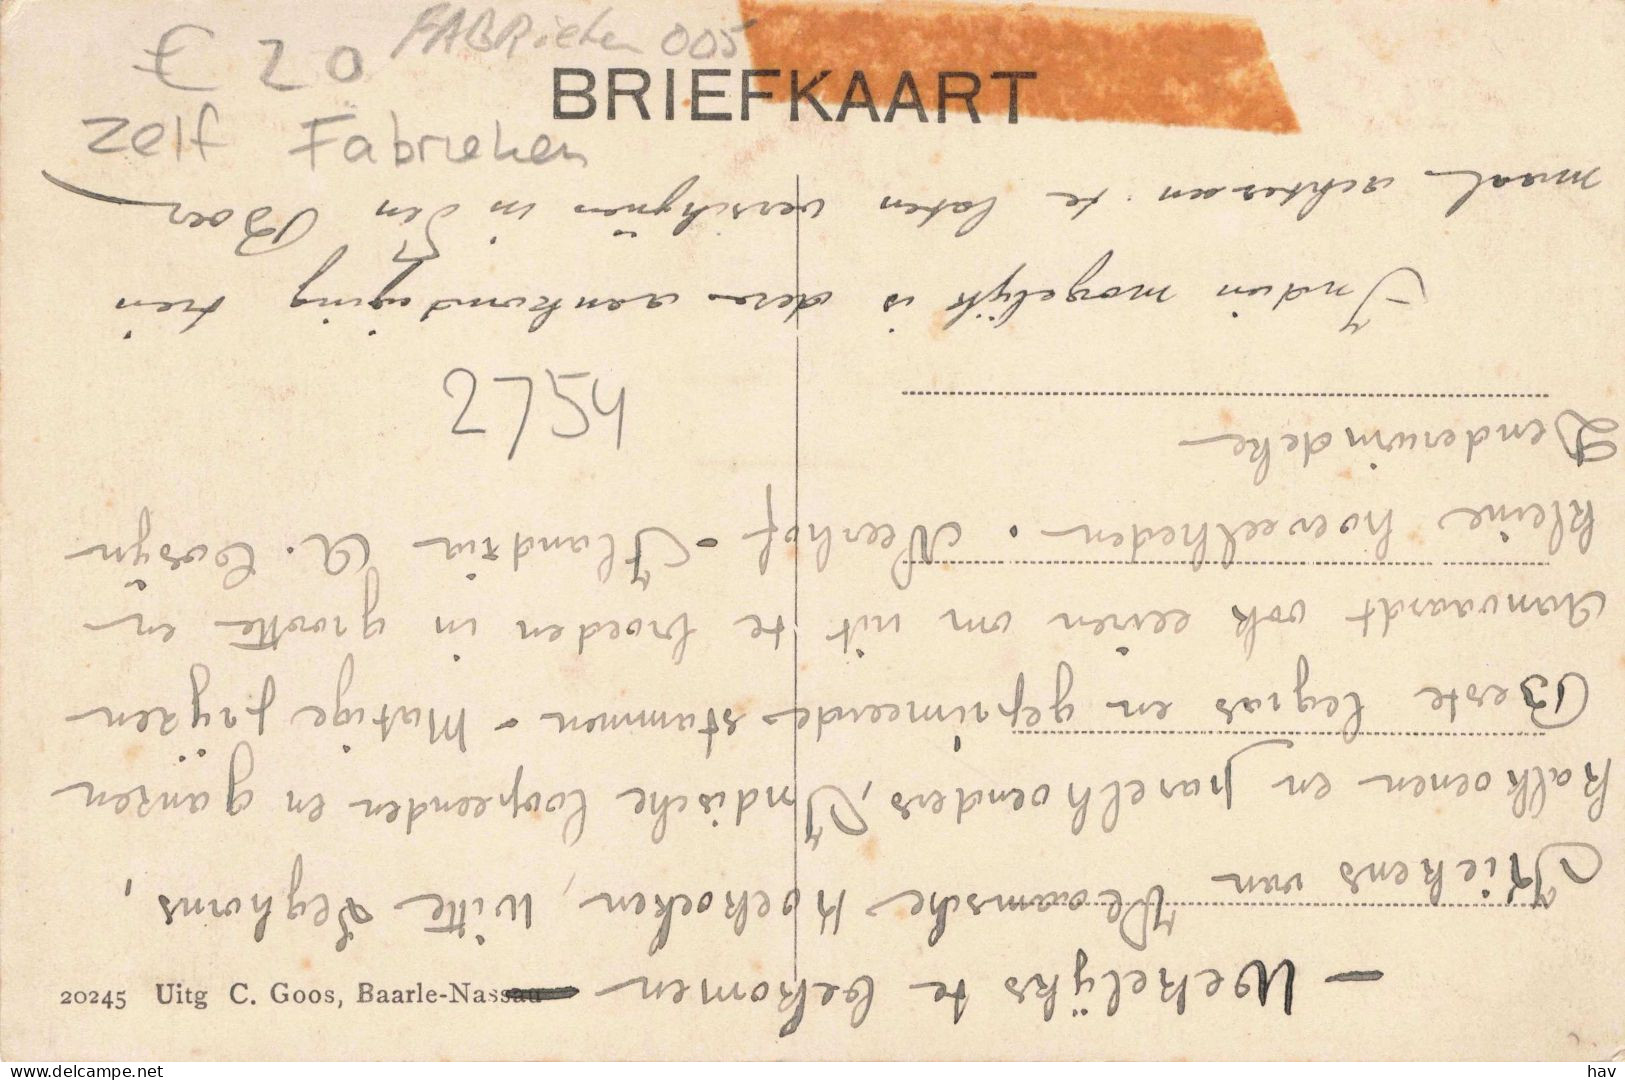 € 20 FABRieken 005
BRIEFKAART
Zelf Fabrieken
20245 Uitg C. Goos, Baarle-Nassau
- Wekelijks te bekomen -
Kiekens van Vlaamsche Koekoeken, Witte Leghorns,
Kalkoenen en parelhoenders, Indische loopeenden en ganzen
Beste legras en geprimeerde stammen - Matige pryzen
Aanvaardt ook eeiren om uit te broeden in groote en
kleine hoeveelheden. Neerhof - Flandria A. Cosijn
Denderwindeke
2754
Indien mogelijk is deze aankondiging tien
maal achtereen te laten verschijnen in den Boer
hav